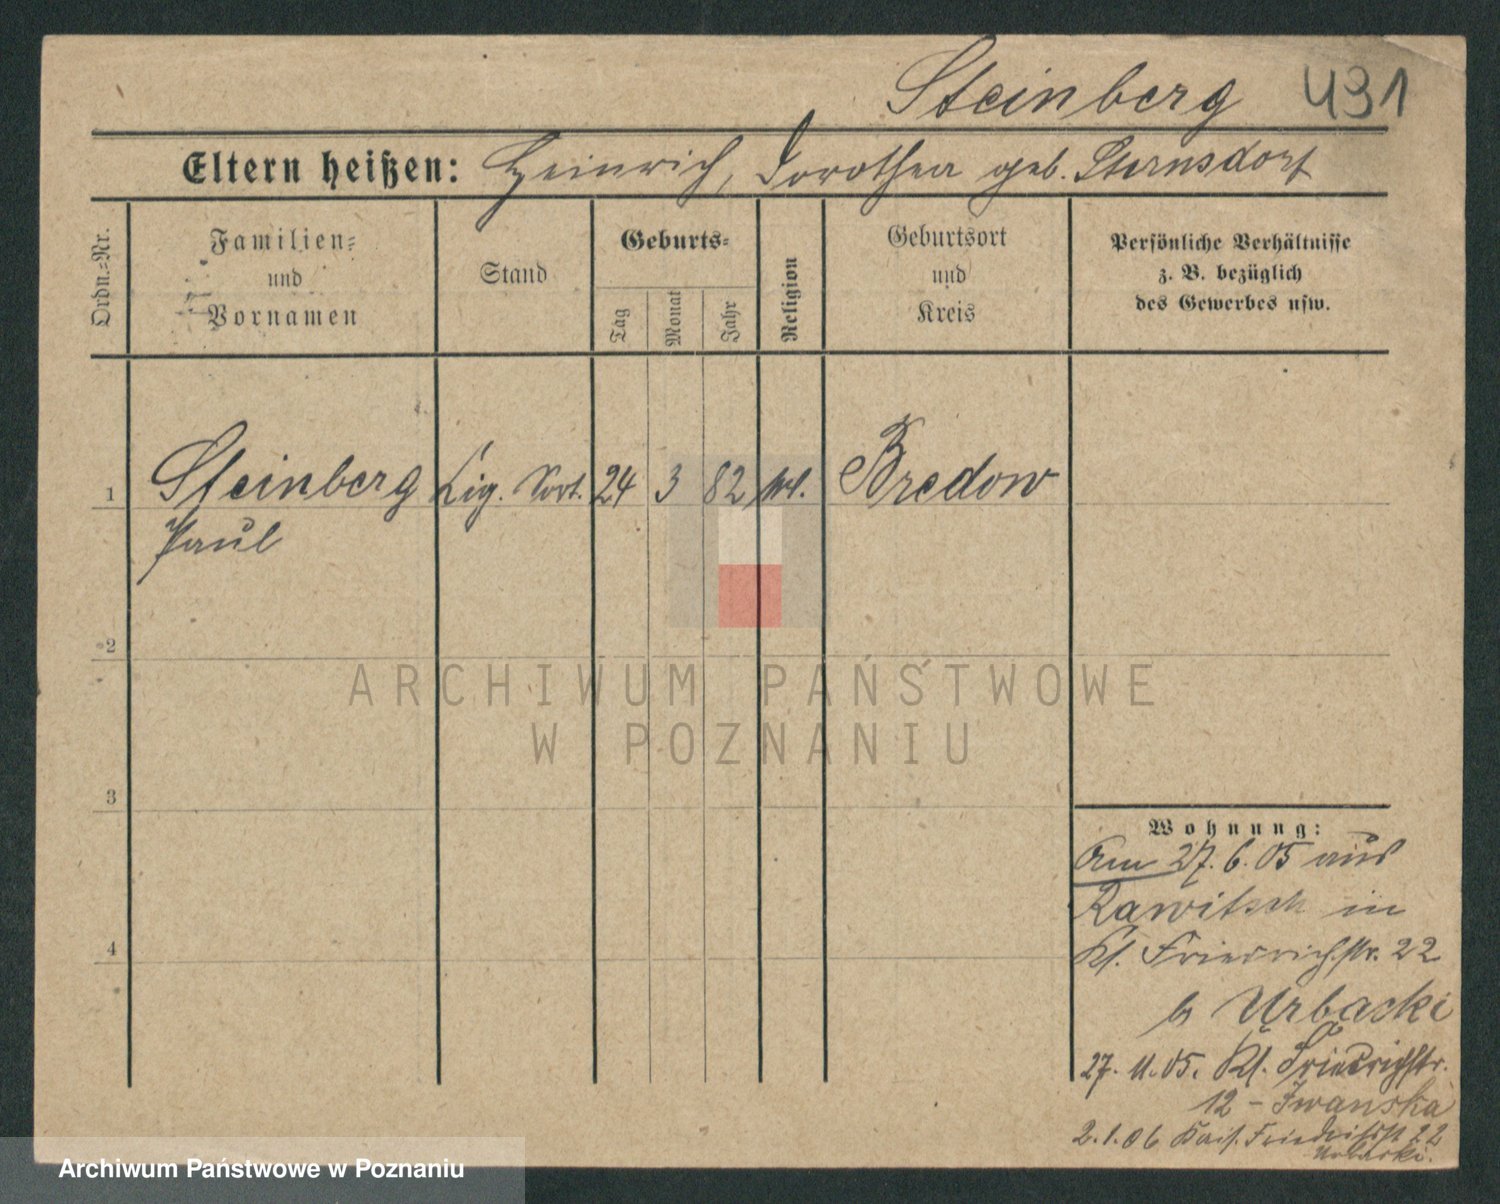 Steinberg 431
Eltern heißen: Heinrich, Dorothea geb. Sternsdorf
Ordn.=Nr.
Familien=
und
Vornamen
Stand
Geburts=
Tag
Monat
Jahr
Religion
Geburtsort
und
Kreis
Persönliche Verhältnisse
z. B. bezüglich
des Gewerbes usw.
1 Steinberg Zig. Sort. 24 3 82 Bredow
Paul
2
3
4
ARCHIWUM PAŃSTWOWE
W POZNANIU
Wohnung:
Am 27.6.05 aus
Rawitsch in
Kl. Friedrichstr. 22
b Urbacki
27.11.05. Kl. Friedrichstr.
12 - Iwanska
2.1.06 Friedrichstr 22
Urbacki.
Archiwum Państwowe w Poznaniu